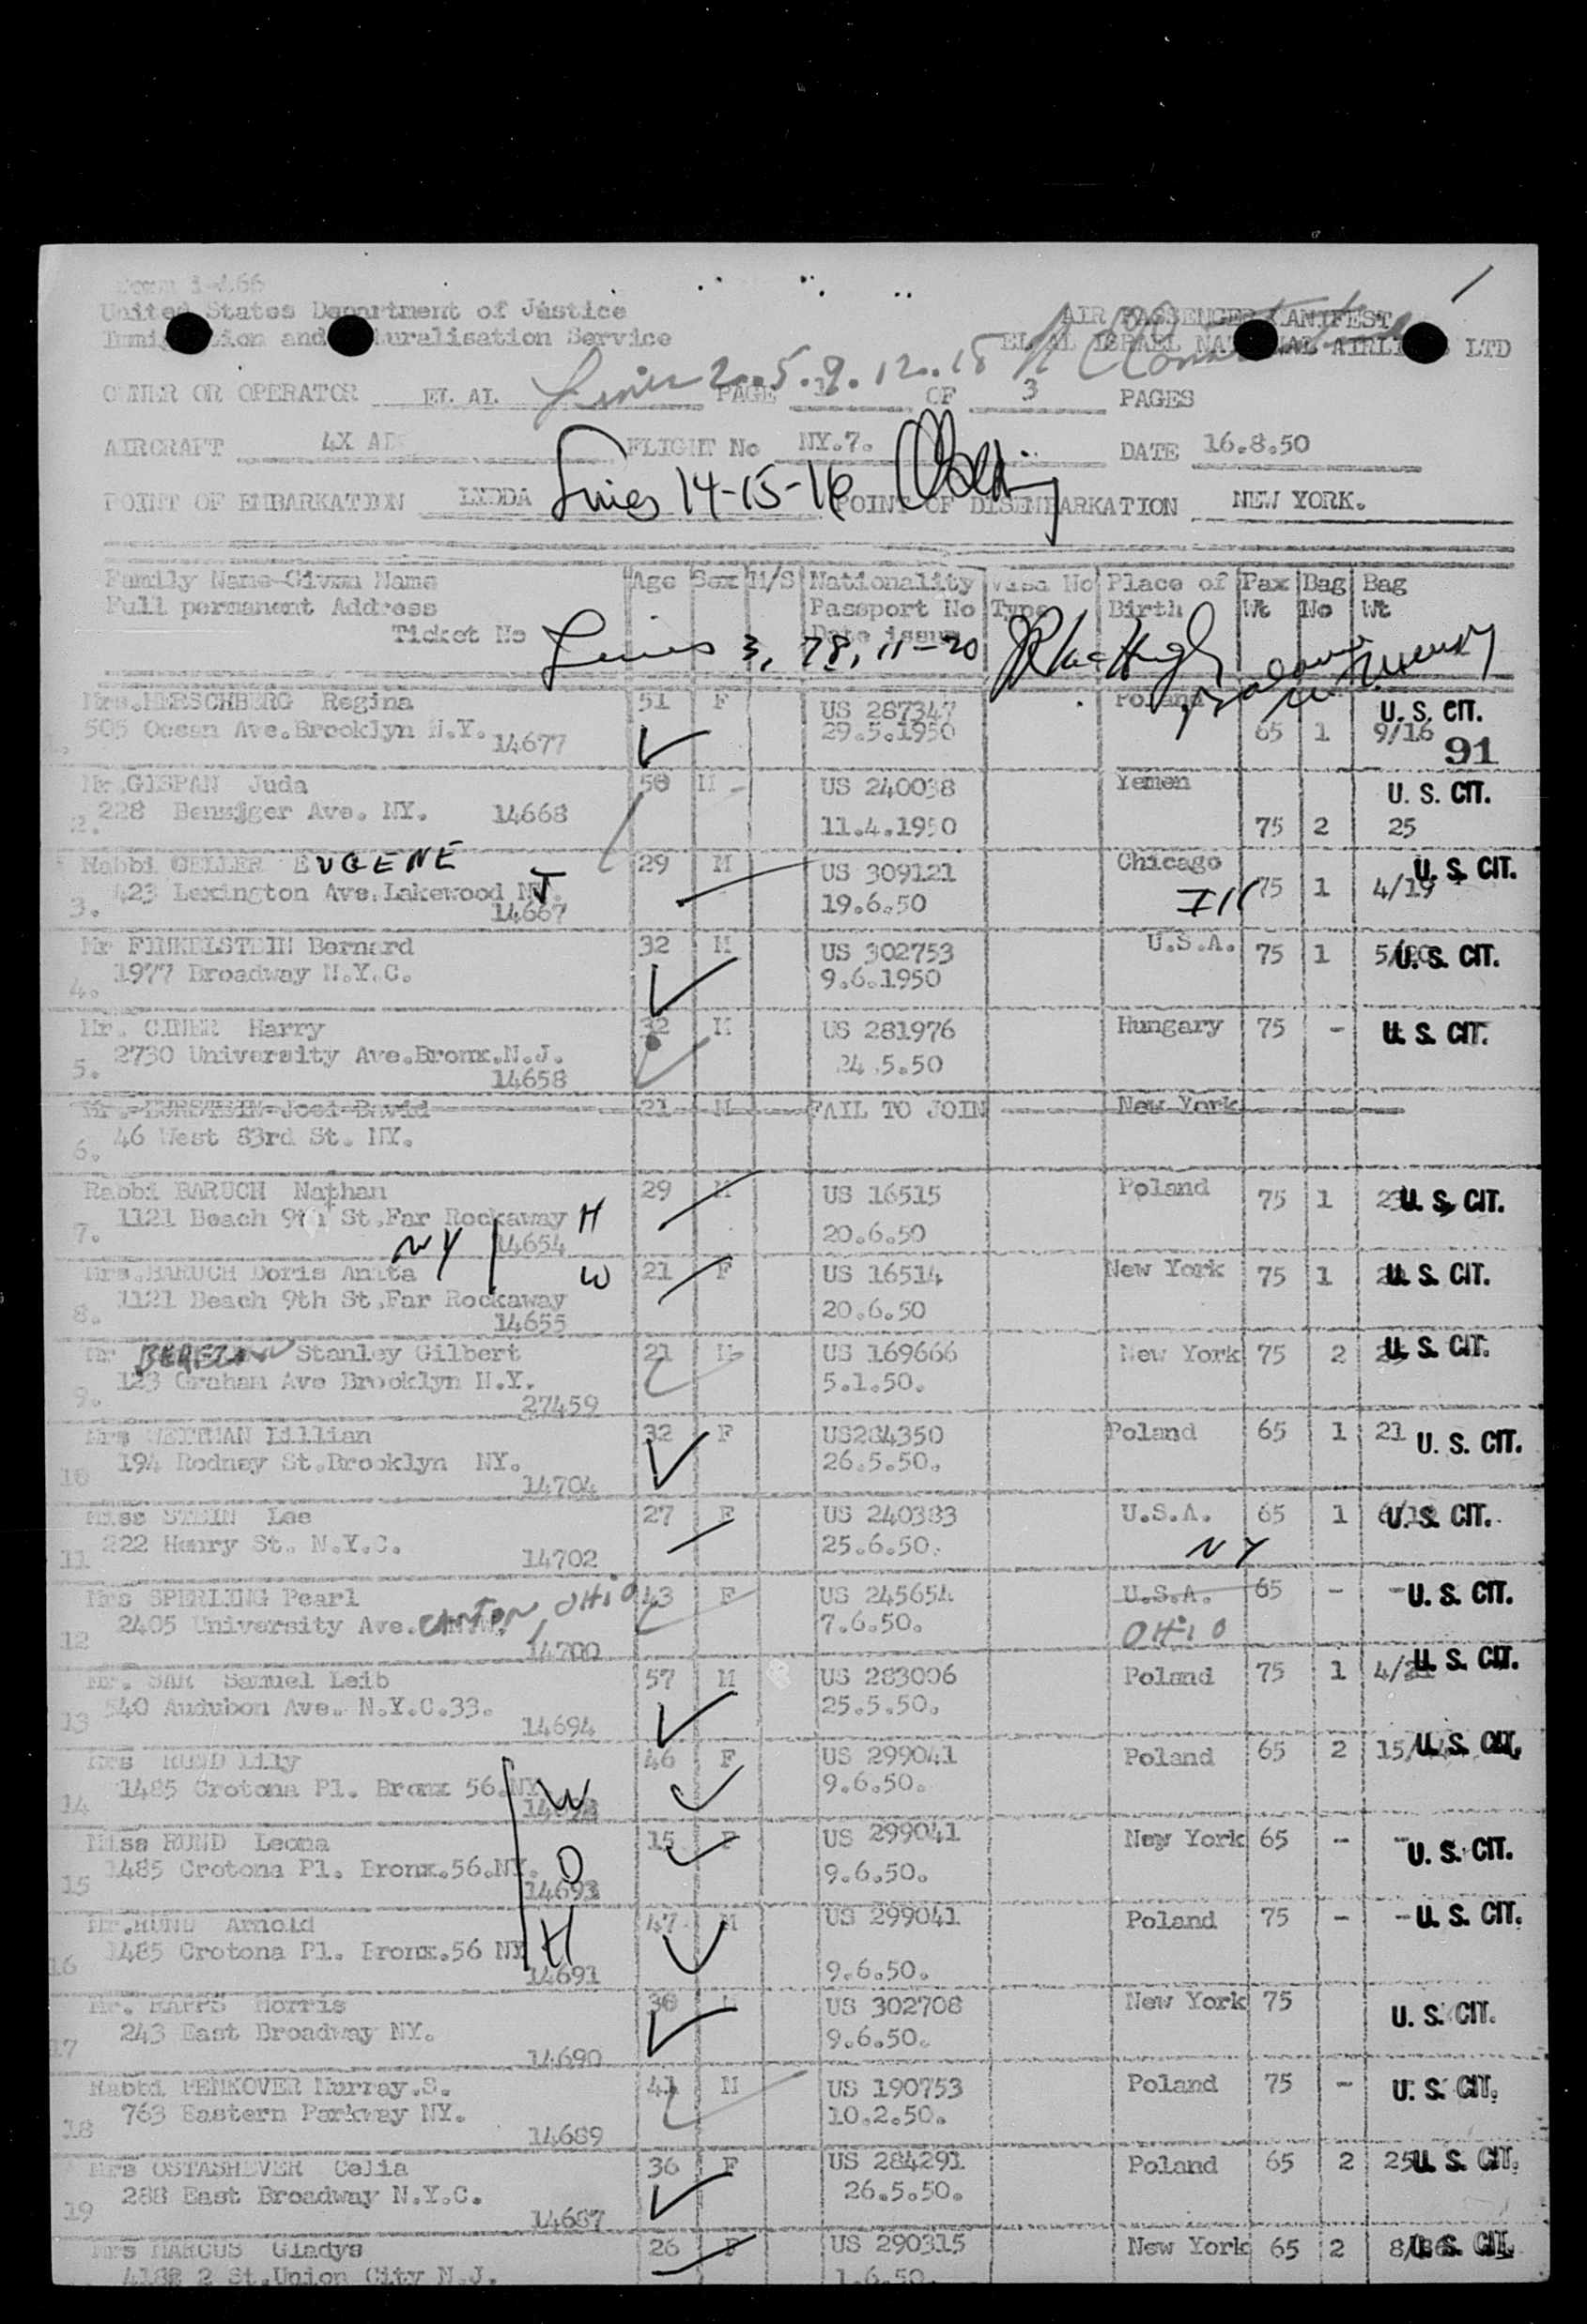 Form I-466
United States Department of Justice
AIR PASSENGER MANIFEST
Immigration and Naturalisation Service
EL AL ISRAEL NATIONAL AIRLINES LTD
Lines 2.5.9.12.18
OWNER OR OPERATOR EL AL PAGE 1 OF 3 PAGES
AIRCRAFT 4X AD FLIGHT No NY.7. DATE 16.8.50
Lines 14-15-16
POINT OF EMBARKATION LYDDA POINT OF DISEMBARKATION NEW YORK.
Family Name-Given Name Age Sex M/S Nationality Visa No Place of Pax Bag Bag
Full permanent Address Passport No Type Birth Wt No Wt
Ticket No Date issue
Lines 3, 78, 11-20
Mrs.HERSCHBERG Regina 51 F US 287347 Poland U. S. CIT.
1. 505 Ocean Ave.Brooklyn N.Y. 14677 29.5.1950 65 1 9/16 91
Mr.GISPAN Juda 50 M US 240038 Yemen U. S. CIT.
2. 228 Ave. NY. 14668 11.4.1950 75 2 25
Rabbi GELLER EUGENE 29 M US 309121 Chicago U. S. CIT.
3. 423 Lexington Ave.Lakewood NJ. 14667 19.6.50 Ill 75 1 4/19
Mr FINKELSTEIN Bernard 32 M US 302753 U.S.A. 75 1 U. S. CIT.
4. 1977 Broadway N.Y.C. 9.6.1950
Mr. CINER Harry 32 M US 281976 Hungary 75 - U. S. CIT.
5. 2730 University Ave.Bronx.N.J. 14658 24.5.50
Mr. BURSTEIN Joel David 21 M FAIL TO JOIN New York
6. 46 West 83rd St. NY.
Rabbi BARUCH Nathan 29 M US 16515 Poland 75 1 U. S. CIT.
7. 1121 Beach 9th St.Far Rockaway H 14654 20.6.50
NY
Mrs.BARUCH Doris Anita W 21 F US 16514 New York 75 1 U. S. CIT.
8. 1121 Beach 9th St.Far Rockaway 14655 20.6.50
Mr Stanley Gilbert 21 M US 169666 New York 75 2 U. S. CIT.
9. 123 Graham Ave Brooklyn N.Y. 27459 5.1.50.
Mrs WEITMAN Lillian 32 F US284350 Poland 65 1 21 U. S. CIT.
10 194 Rodney St.Brooklyn NY. 14704 26.5.50.
Miss STEIN Lee 27 F US 240383 U.S.A. 65 1 U. S. CIT.
11 222 Henry St. N.Y.C. 14702 25.6.50. NY
Mrs SPERLING Pearl 43 F US 245654 U.S.A. 65 - - U. S. CIT.
12 2405 University Ave. CANTON, OHIO 14700 7.6.50. OHIO
Mr. SAR Samuel Leib 57 M US 283006 Poland 75 1 U. S. CIT.
13 540 Audubon Ave. N.Y.C.33. 14694 25.5.50.
Mrs RUND Lily 46 F US 299041 Poland 65 2 U. S. CIT.
14 1485 Crotona Pl. Bronx 56.NY W 9.6.50.
Miss RUND Leona 15 F US 299041 New York 65 - - U. S. CIT.
15 1485 Crotona Pl. Bronx.56.NY. D 14693 9.6.50.
Mr.RUND Arnold 47 M US 299041 Poland 75 - - U. S. CIT.
16 1485 Crotona Pl. Bronx.56 NY H 14691 9.6.50.
Mr. KAPPS Morris 30 M US 302708 New York 75 U. S. CIT.
17 243 East Broadway NY. 14690 9.6.50.
Rabbi PENKOVER Murray.S. 41 M US 190753 Poland 75 - U. S. CIT.
18 763 Eastern Parkway NY. 14689 10.2.50.
Mrs OSTASHEVER Celia 36 F US 284291 Poland 65 2 25 U. S. CIT.
19 288 East Broadway N.Y.C. 14687 26.5.50.
Mrs MARCUS Gladys 26 F US 290315 New York 65 2 U. S. CIT.
4188 2 St.Union City N.J. 1.6.50.